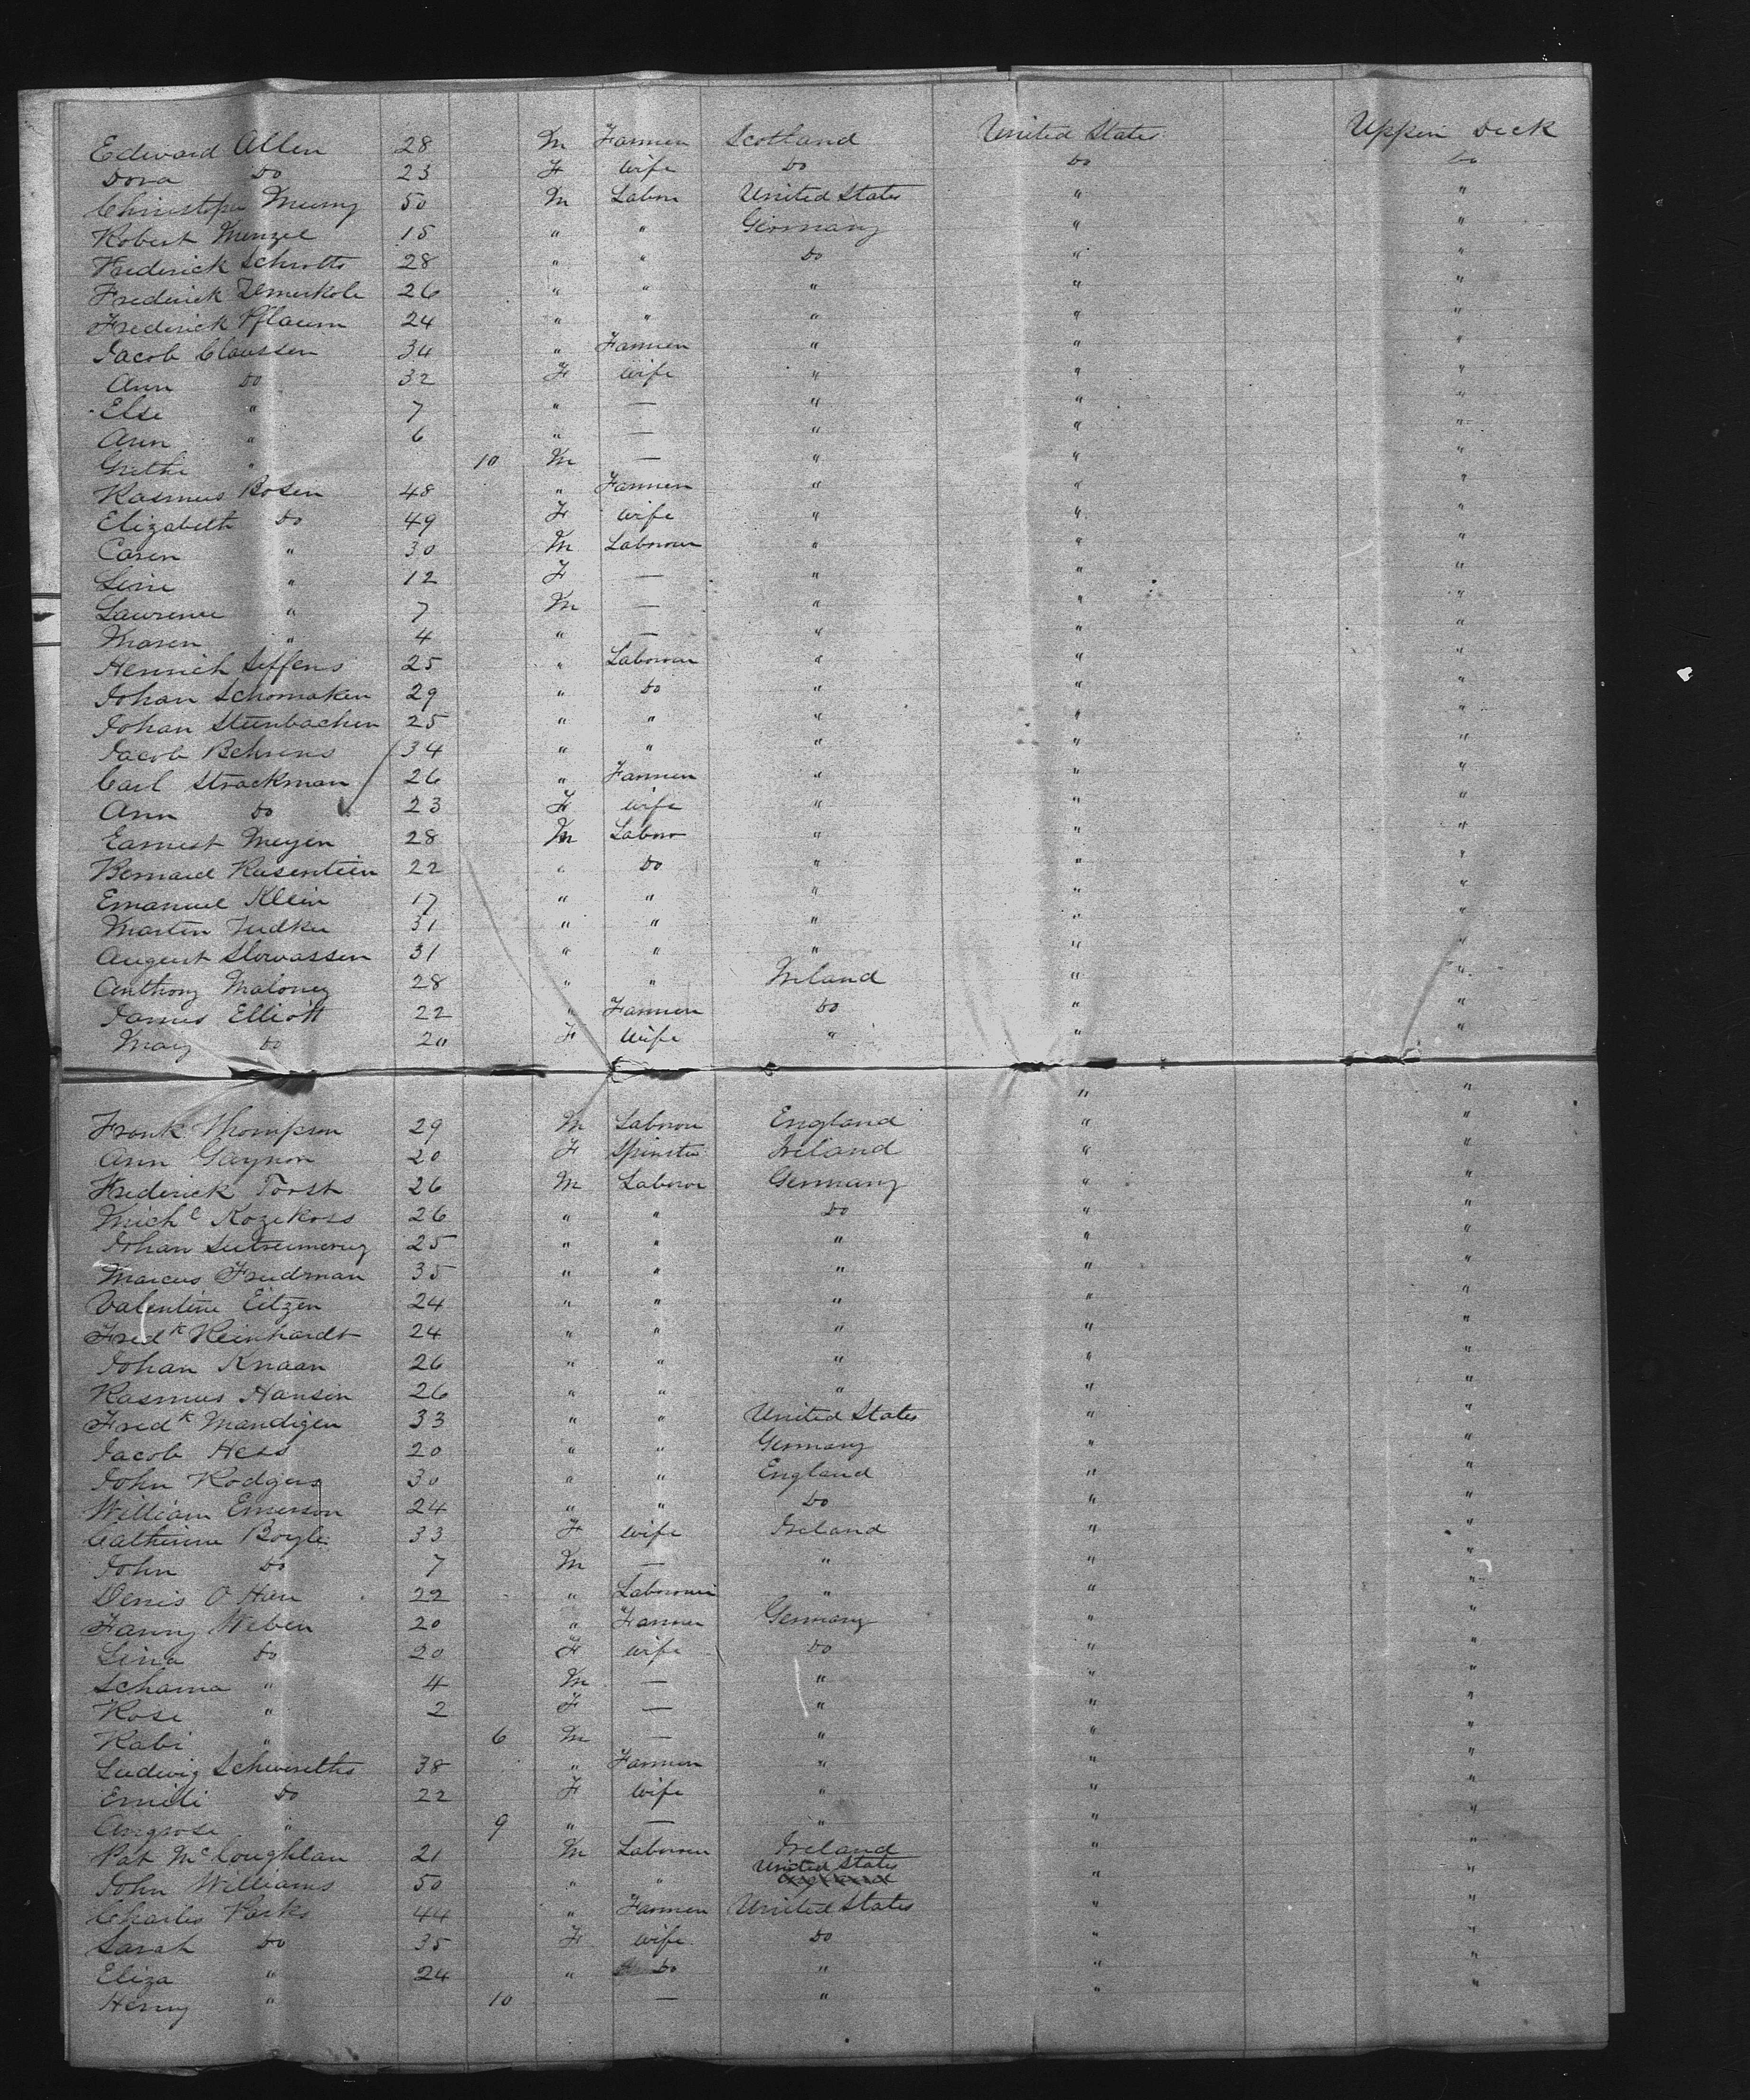 Edward Allen 28 M Farmer Scotland United States Upper Deck
Dora Do 23 F Wife Do Do Do
Christopr Murry 50 M Labor United States " "
Robert Menzel 15 " " Germany " "
Frederick Schrotts 28 " " Do " "
Frederick 26 " " " " "
Frederick Pflaum 24 " " " " "
Jacob Claussen 34 " Farmer " " "
Ann Do 32 F Wife " " "
Else " 7 " — " " "
Ann " 6 " — " " "
Grethe " 10 M — " " "
Rasmus Bosen 48 " Farmer " " "
Elizabeth Do 49 F Wife " " "
Caren " 30 M Labourer " " "
Line " 12 F — " " "
Lawrence " 7 M — " " "
Maren " 4 " — " " "
Henrich Siffens 25 " Labourer " " "
Johan Schomaker 29 " Do " " "
Johan Steinbacher 25 " " " " "
Jacob Behrens 34 " " " " "
Carl Strackman 26 " Farmer " " "
Ann Do 23 F Wife " " "
Earnest Meyer 28 M Labor " " "
Bernard Rusentein 22 " Do " " "
Emanuel Klein 17 " " " " "
Martin Judke 31 " " " " "
August Slowassen 31 " " " " "
Anthony Maloney 28 " " Ireland " "
James Elliott 22 " Farmer Do " "
Mary Do 20 F Wife " " "
" "
Frank Thompson 29 M Labour England " "
Ann Gaynor 20 F Spinster Ireland " "
Frederick Toost 26 M Labour Germany " "
Michl Kozikoss 26 " " Do " "
Johan 25 " " " " "
Marcus Fredman 35 " " " " "
Valentine Eitzen 24 " " " " "
Fredk Reinhardt 24 " " " " "
Johan Knaan 26 " " " " "
Rasmus Hansen 26 " " " " "
Fredk Mandiger 33 " " United States " "
Jacob Hess 20 " " Germany " "
John Rodgers 30 " " England " "
William Emerson 24 " " Do " "
Catherine Boyle 33 F Wife Ireland " "
John Do 7 M — " " "
Denis O Hare 22 " Labourer " " "
Fanny Weber 20 " Farmer Germany " "
Lina Do 20 F Wife Do " "
Schama " 4 M — " " "
Rose " 2 F — " " "
Rabi " 6 M — " " "
Ludwig Schwerelths 38 " Farmer " " "
Emili Do 22 F Wife " " "
Angrose " 9 " — " " "
Pat McCoughlan 21 M Labourer Ireland " "
John Williams 50 " " United States " "
Charles Parks 44 " Farmer United States " "
Sarah Do 35 F Wife Do " "
Eliza " 24 " Do " " "
Henry " 10 — " " "